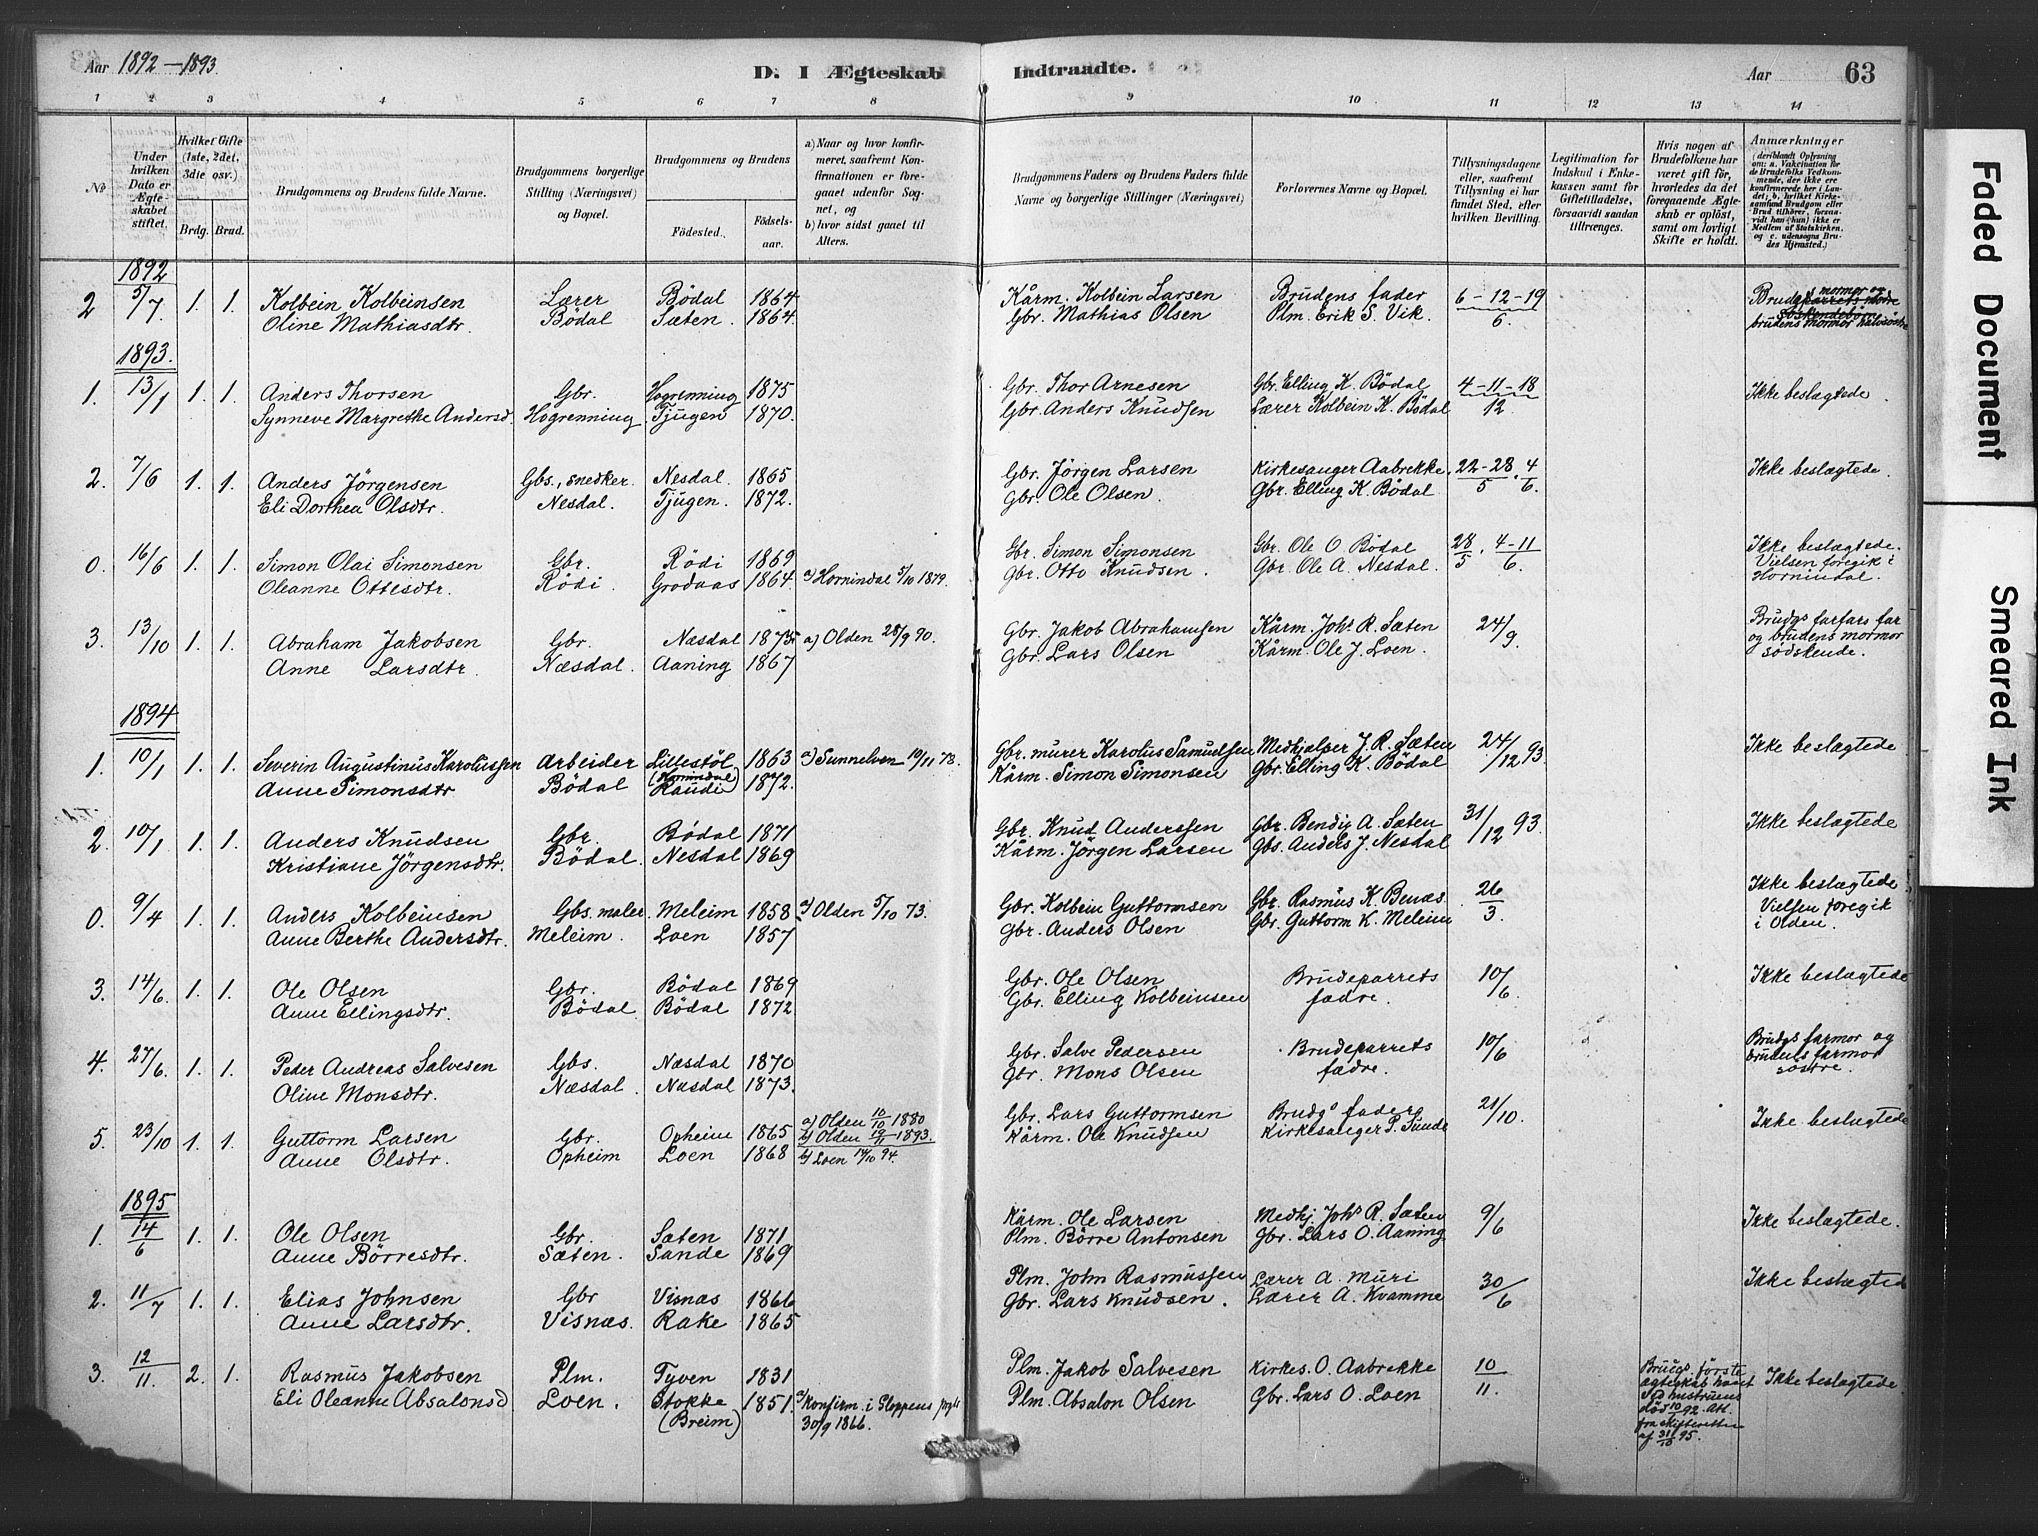 Aar 1892–1893
D. I Ægteskab Indtraadte.
Aar 63
1 2 3 4 5 6 7 8 9 10 11 12 13 14
No
Under hvilken Dato er Ægteskabet stiftet.
Hvilket Gifte (1ste, 2det, 3die osv.)
Brdg. Brud.
Brudgommens og Brudens fulde Navne.
Brudgommens borgerlige Stilling (Næringsvei) og Bopæl.
Brudgommens og Brudens
Fødested. Fødselsaar.
a) Naar og hvor konfirmeret, saafremt Konfirmationen er foregaaet udenfor Sognet, og
b) hvor sidst gaaet til Alters.
Brudgommens Faders og Brudens Faders fulde Navne og borgerlige Stillinger (Næringsvei)
Forlovernes Navne og Bopæl.
Tillysningsdagene eller, saafremt Tillysning ei har fundet Sted, efter hvilken Bevilling.
Legitimation for Indskud i Enkekassen samt for Giftetilladelse, forsaavidt saadan tiltrænges.
Hvis nogen af Brudefolkene har været gift før, hvorledes da det foregaaende Ægteskab er opløst, samt om lovligt Skifte er holdt.
Anmærkninger
(deriblandt Oplysning om: a. Vakcination for de Brudefolks Vedkommende, der ikke ere konfirmerede her i Landet; b. hvilket Kirkesamfund Brudgom eller Brud tilhører, forsaavidt han (hun) ikke er Medlem af Statskirken, og c. udensogns Brudes Hjemsted.)
1892
2 5/7 1. 1. Kolbein Kolbeinsen Lærer Bödal 1864 Kårm. Kolbein Larsen Brudens fader 6-12-19 Brudg. mormor og
Oline Mathiasdtr. Bödal Sæten. 1864. Gbr. Mathias Olsen Plm. Erik S. Vik. 6. brudens mormor
1893.
1. 13/1 1. 1. Anders Thorsen Gbr. Hogrenning 1875 Gbr. Thor Arnesen Gbr. Elling K. Bödal 4-11-18 Ikke beslægtede.
Synneve Margrethe Andersd. Hogrenning Tjugen 1870. Gbr. Anders Knudsen Lærer Kolbein K. Bödal 12.
2. 7/6 1. 1. Anders Jörgensen Gbs., snedker. Nesdal. 1865 Gbr. Jörgen Larsen Kirkesanger Aabrekke. 22-28. 4 Ikke beslægtede.
Eli Dorthea Olsdtr. Nesdal. Tjugen. 1872. Gbr. Ole Olsen. Gbr. Elling K. Bödal 5. 6.
0. 16/6 1. 1. Simon Olai Simonsen Gbr. Rödi 1869 Gbr. Simon Simonsen Gbr. Ole O. Bödal 28. 4-11 Ikke beslægtede.
Oleanne Ottesdtr. Rödi. Grodaas 1864. a) Hornindal 5/10 1879. Gbr. Otto Knudsen. Gbr. Ole A. Nesdal. 5 6. Vielsen foregik i
Hornindal.
3. 13/10 1. 1. Abraham Jakobsen Gbr. Næsdal 1873 a) Olden 28/9 90. Gbr. Jakob Abrahamsen Kårm. Johs R. Sæten 24/9. Brudgs farfars far
Anne Larsdtr. Næsdal. Aaning 1867 Gbr. Lars Olsen Kårm. Ole J. Loen. og brudens mormor
södskende.
1894
1. 10/1 1. 1. Severin Augustinus Karolussen Arbeider Lillestöl 1863 a) Sunnelven 19/11 78. Gbr. murer Karolus Samuelsen Medhjælper J. R. Sæten 24/12 93 Ikke beslægtede
(Hornindal)
Anne Simonsdtr. Bödal Raudi 1872. Kårm. Simon Simonsen Gbr. Elling K. Bödal
2. 10/1 1. 1. Anders Knudsen Gbr. Bödal 1871 Gbr. Knud Anderssen Gbr. Bendig A. Sæten 31/12 93. Ikke beslægtede
Kristiane Jörgensdtr. Bödal. Nesdal 1869 Kårm. Jörgen Larsen Gbs. Anders J. Nesdal
0. 9/4 1. 1. Anders Kolbeinsen Gbs. maler. Meleim 1858 a) Olden 5/10 73. Gbr. Kolbein Guttormsen Gbr. Rasmus K. Benæs. 26 Ikke beslægtede
Anne Berthe Andersdtr. Meleim. Loen 1857 Gbr. Anders Olsen Gbr. Guttorm K. Meleim 3. Vielsen foregik
i Olden.
3. 14/6. 1. 1. Ole Olsen Gbr. Bödal 1869 Gbr. Ole Olsen Brudeparrets 10/6. Ikke beslægtede
Anne Ellingsdtr. Bödal Bödal 1872 Gbr. Elling Kolbeinsen fædre.
4. 27/6. 1. 1. Peder Andreas Salvesen Gbs. Næsdal 1870 Gbr. Salve Pedersen Brudeparrets 10/6 Brudgs farmor og
Oline Monsdtr. Næsdal. Næsdal 1873. Gbr. Mons Olsen fædre. brudens farmor
söstre.
5. 23/10 1. 1. Guttorm Larsen Gbr. Opheim 1865 a) Olden 10/10 1880 Gbr. Lars Guttormsen Brudgs fader 21/10. Ikke beslægtede
b) Olden 19/11 1893.
Anne Olsdtr. Opheim Loen 1868 b) Loen 14/10 94. Kårm. Ole Knudsen Kirkesanger P. Sunde
1895
1. 14/6 1. 1. Ole Olsen Gbr. Sæten 1871 Kårm. Ole Larsen Medhj. Johs R. Sæten 9/6 Ikke beslægtede.
Anne Börresdtr. Sæten. Sande 1869 Plm. Börre Antonsen Gbr. Lars O. Aaning
2. 11/7 1. 1. Elias Johnsen Gbr Visnæs 1866 Plm. John Rasmussen Lærer A. Muri 30/6 Ikke beslægtede
Anne Larsdtr. Visnæs. Rake 1865 Gbr. Lars Knudsen. Lærer A. Kvamme
3. 12/11. 2. 1. Rasmus Jakobsen Plm. Tyven 1831 Plm. Jakob Salvesen Kirkes. O. Aabrekke 10 Brudgs förste Ikke beslægtede
ægteskab hævet
Eli Oleanne Absalonsd Loen. Stokke 1851. a) Konfirm. i Gloppens prgld Plm. Absalon Olsen Gbr. Lars O. Loen 11. ved hustruens
(Breim) 30/9 1866. död 10/10 92. Att.
fra skifteretten
af 31/10 95.
Faded Document
Smeared Ink